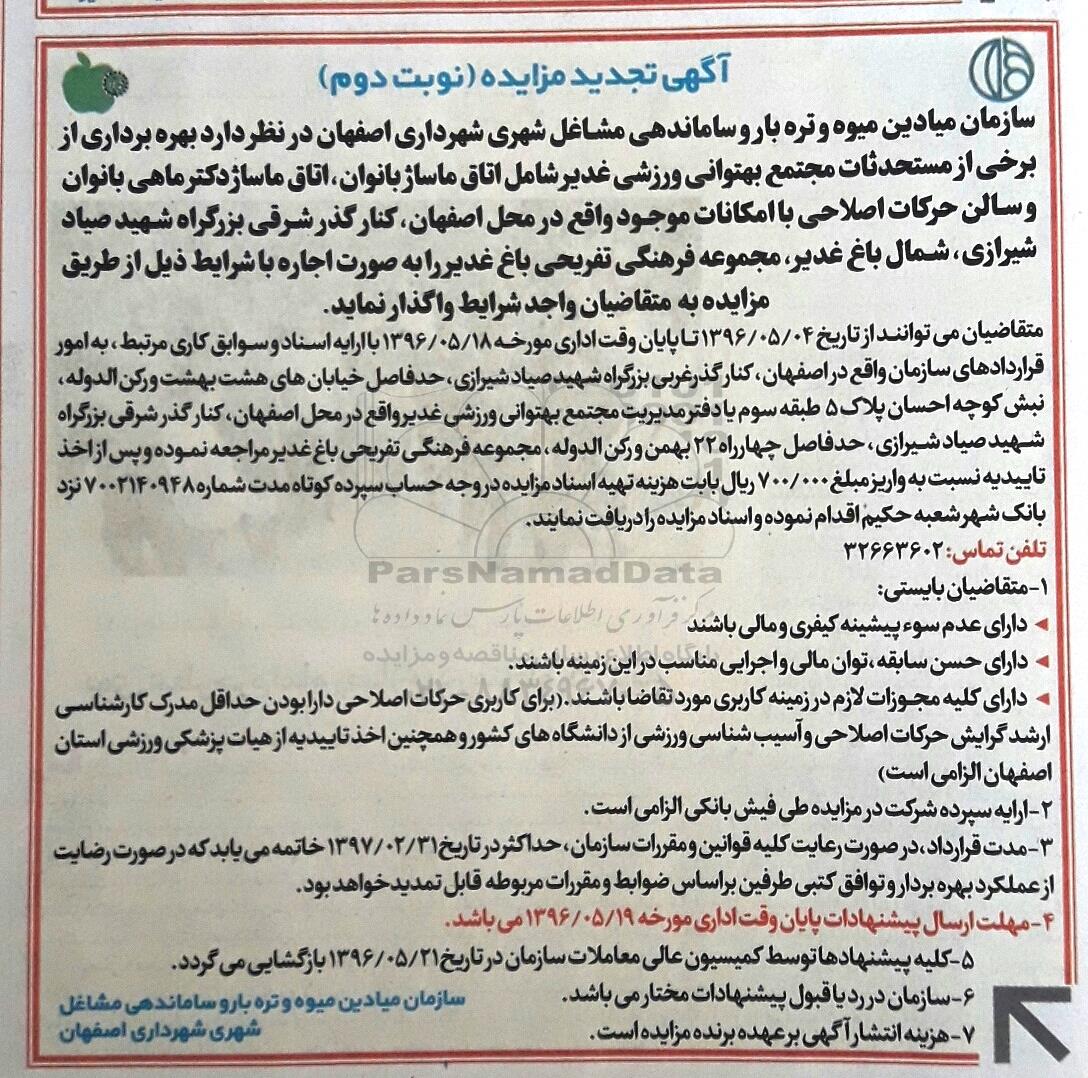 آگهی تجدید مزایده (نوبت دوم)
سازمان میادین میوه و تره بار و ساماندهی مشاغل شهری شهرداری اصفهان در نظر دارد بهره برداری از
برخی از مستحدثات مجتمع بهتوانی ورزشی غدیر شامل اتاق ماساژ بانوان، اتاق ماساژ دکتر ماهی بانوان
و سالن حرکات اصلاحی با امکانات موجود واقع در محل اصفهان، کنار گذر شرقی بزرگراه شهید صیاد
شیرازی، شمال باغ غدیر، مجموعه فرهنگی تفریحی باغ غدیر را به صورت اجاره با شرایط ذیل از طریق
مزایده به متقاضیان واجد شرایط واگذار نماید.
متقاضیان می توانند از تاریخ ۱۳۹۶/۰۵/۰۴ تا پایان وقت اداری مورخه ۱۳۹۶/۰۵/۱۸ با ارایه اسناد و سوابق کاری مرتبط، به امور
قراردادهای سازمان واقع در اصفهان، کنار گذر غربی بزرگراه شهید صیاد شیرازی، حدفاصل خیابان های هشت بهشت و رکن الدوله،
نبش کوچه احسان پلاک ۵ طبقه سوم یا دفتر مدیریت مجتمع بهتوانی ورزشی غدیر واقع در محل اصفهان، کنار گذر شرقی بزرگراه
شهید صیاد شیرازی، حدفاصل چهارراه ۲۲ بهمن و رکن الدوله، مجموعه فرهنگی تفریحی باغ غدیر مراجعه نموده و پس از اخذ
تاییدیه نسبت به واریز مبلغ ۷۰۰/۰۰۰ ریال بابت هزینه تهیه اسناد مزایده در وجه حساب سپرده کوتاه مدت شماره ۷۰۰۲۱۴۰۹۴۸ نزد
بانک شهر شعبه حکیم اقدام نموده و اسناد مزایده را دریافت نمایند.
تلفن تماس: ۳۲۶۶۳۶۰۲
ParsNamadData
۱-متقاضیان بایستی:
مرکز فرآوری اطلاعات پارس نماد داده ها
◄ دارای عدم سوء پیشینه کیفری و مالی باشند
پایگاه اطلاع رسانی مناقصه و مزایده
◄ دارای حسن سابقه، توان مالی و اجرایی مناسب در این زمینه باشند.
◄ دارای کلیه مجوزات لازم در زمینه کاربری مورد تقاضا باشند. (برای کاربری حرکات اصلاحی دارا بودن حداقل مدرک کارشناسی
ارشد گرایش حرکات اصلاحی و آسیب شناسی ورزشی از دانشگاه های کشور و همچنین اخذ تاییدیه از هیات پزشکی ورزشی استان
اصفهان الزامی است)
۲-ارایه سپرده شرکت در مزایده طی فیش بانکی الزامی است.
۳-مدت قرارداد، در صورت رعایت کلیه قوانین و مقررات سازمان، حداکثر در تاریخ ۱۳۹۷/۰۲/۳۱ خاتمه می یابد که در صورت رضایت
از عملکرد بهره بردار و توافق کتبی طرفین براساس ضوابط و مقررات مربوطه قابل تمدید خواهد بود.
۴-مهلت ارسال پیشنهادات پایان وقت اداری مورخه ۱۳۹۶/۰۵/۱۹ می باشد.
۵-کلیه پیشنهادها توسط کمیسیون عالی معاملات سازمان در تاریخ ۱۳۹۶/۰۵/۲۱ بازگشایی می گردد.
۶-سازمان در رد یا قبول پیشنهادات مختار می باشد.
۷-هزینه انتشار آگهی بر عهده برنده مزایده است.
سازمان میادین میوه و تره بار و ساماندهی مشاغل
شهری شهرداری اصفهان